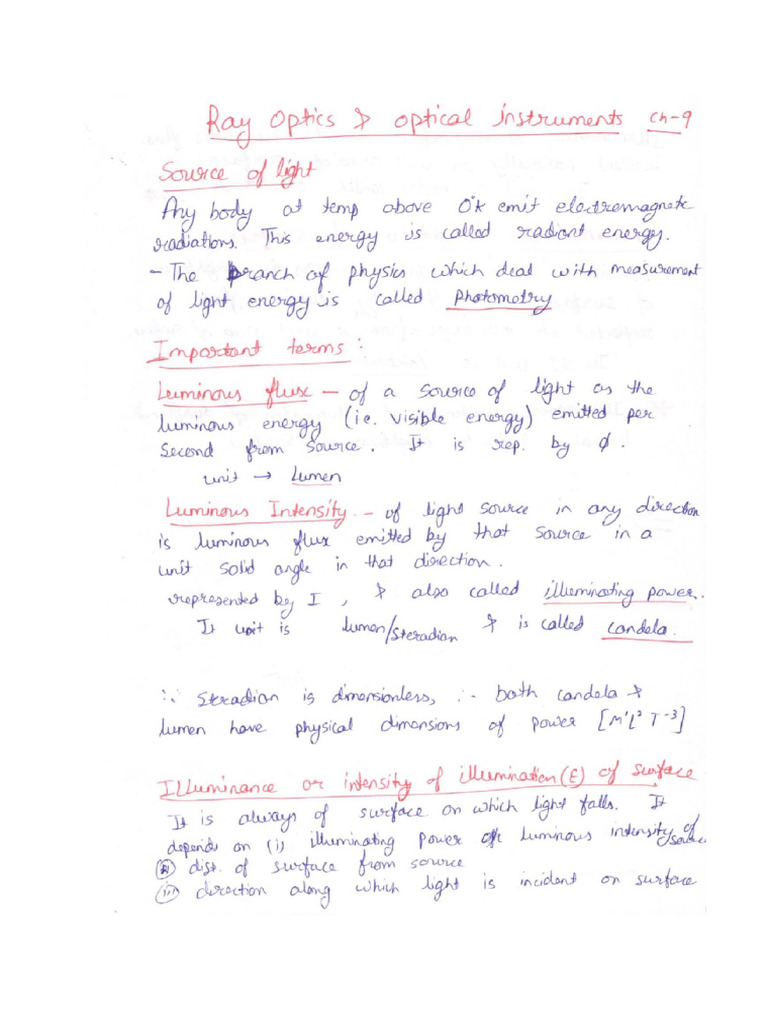 Ray Optics & optical instruments ch-9
Source of light
Any body at temp above 0°k emit electromagnetc
radiations. This energy is called radiant energy.
- The branch of physics which deal with measurement
of light energy is called Photometry
Important terms:
Luminous flux - of a source of light as the
luminous energy (ie. visible energy) emitted per
second from source. It is rep. by φ.
unit → Lumen
Luminous Intensity - of light source in any direction
is luminous flux emitted by that source in a
unit solid angle in that direction.
represented by I, & also called illuminating power.
It unit is lumen/steradian & is called candela.
∵ Steradian is dimensionless, ∴ both candela &
lumen have physical dimensions of power [M¹L²T⁻³]
Illuminance or intensity of illumination (E) of surface
It is always of surface on which light falls. It
depends on (i) illuminating power or luminous intensity of source
(ii) dist. of surface from source
(iii) direction along which light is incident on surface